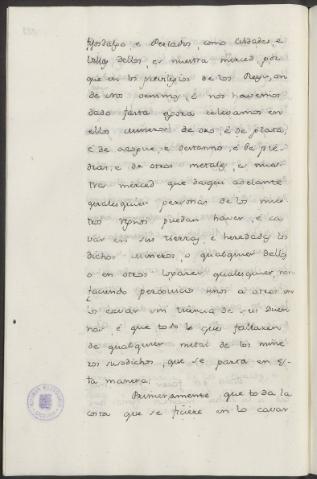 Hijosdalgo e Perlados, como Cibdades, e
Villas dellos, es nuestra merced, por
que en los previlegios de los Reyes, on
de nos venimos, é nos havemos
dado fasta agora retovimos en
ellos mineros de oro, é de plata,
é de azogue, e destanno, é de pie
dras, e de otros metales, e nues
tra merced que daqui adelante
qualesquier personas de los nues
tros regnos puedan haver, e ca
var en sus tierras e heredades los
dichos mineros, o qualquier dellos
o en otros logares qualesquier, non
faciendo perjuicio unos a otros en
los cavar sin licencia de sus due
nos é que todo lo que fallaren
de qualquier metal de los mine
ros susodichos, que se parta en es
ta manera;
Primeramente que toda la
costa que se ficiere en lo cavar